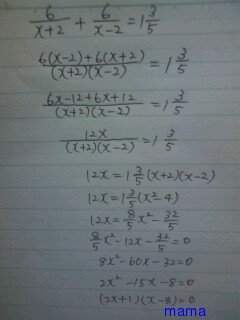 6/(x+2) + 6/(x-2) = 1 3/5
(6(x-2)+6(x+2))/((x+2)(x-2)) = 1 3/5
(6x-12+6x+12)/((x+2)(x-2)) = 1 3/5
12x/((x+2)(x-2)) = 1 3/5
12x = 1 3/5 (x+2)(x-2)
12x = 1 3/5 (x²-4)
12x = 8/5 x² - 32/5
8/5 x² - 12x - 32/5 = 0
8x² - 60x - 32 = 0
2x² - 15x - 8 = 0
(2x+1)(x-8) = 0
mama